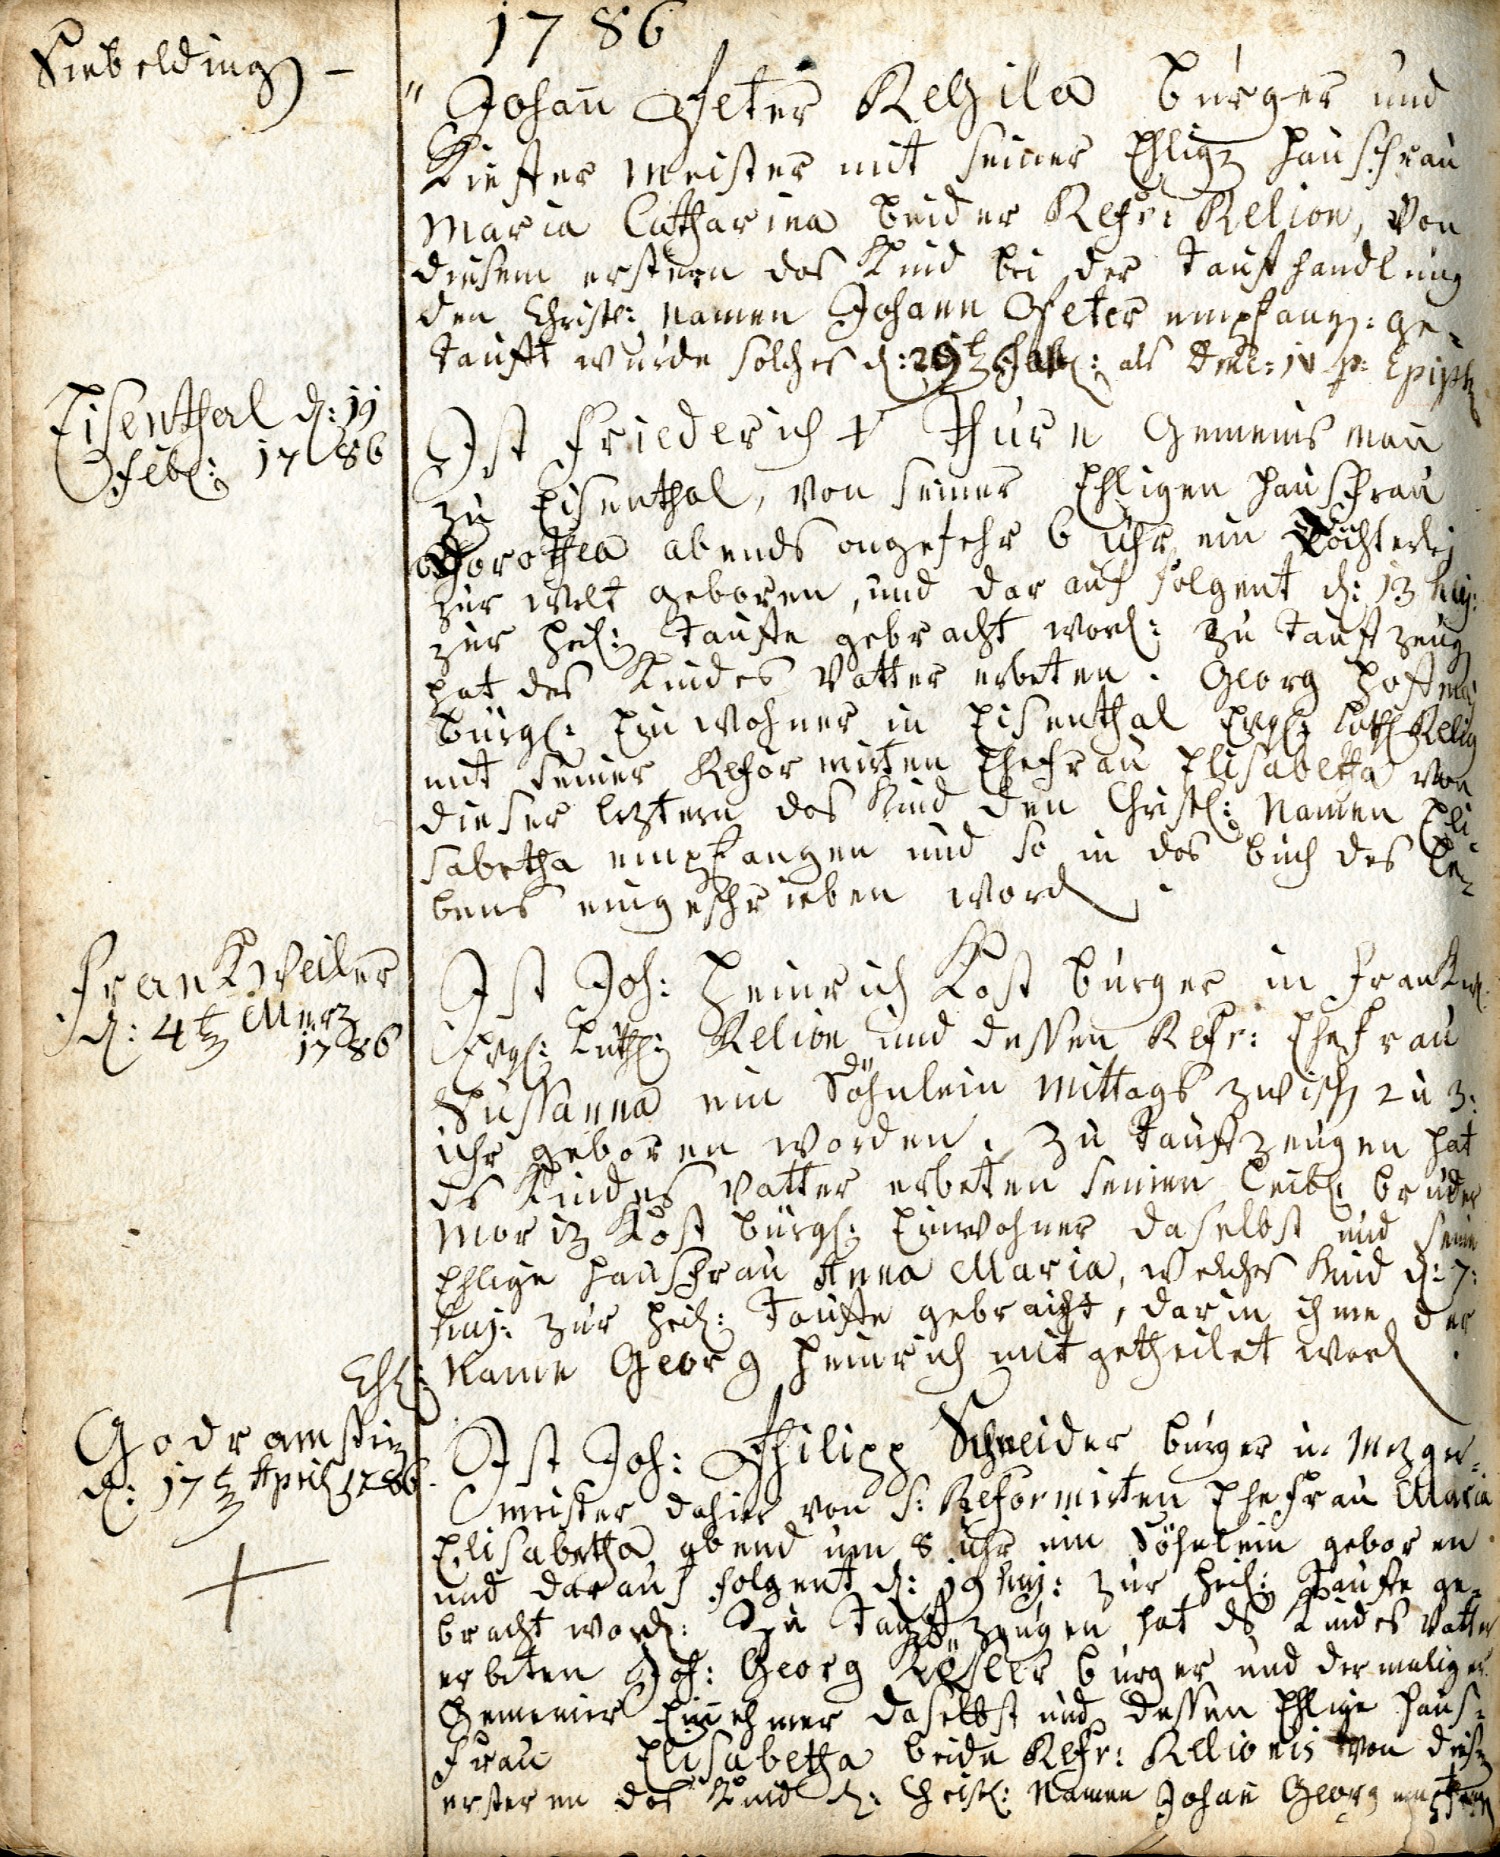 1786
Siebelding –
" Johan̄ Peter Regila Burger und
Kieffer Meister mit seiner Ehlig Hausfrau
Maria Catharina beider Refr: Relion, von
diesem erstern das Kind bei der Taufhandlung
den Christl: Namen Johann Peter empfang: ge-
taufft wurde solches d: 29t als Dom: IV p: Epiph
Eisenthal d: 11
Febr: 1786
Ist Friederich Thürn Gemeins man̄
zu Eisenthal, von seiner Ehligen Hausfrau
Dorothea abends ongefehr 6 Uhr ein Töchterl
zur Welt geboren, und dar auf folgent d: 13 huj:
zur heil: Tauffe gebracht word: zu Taufzeug
hat des Kindes Vatter erbeten. Georg Hoffm
burgl: Einwohner in Eisenthal Evgl: Luth Relig
mit seiner Reformirten Ehefrau Elisabetha von
dieser letztern das Kind den Christl: Namen Eli-
sabetha empfangen und so in das buch des Le-
bens eingeschrieben word
Frankweiler
d: 4t Merz
1786
Ist Joh: Heinrich Kost burger in Frankw:
Evgl: Luth: Relion und dessen Refr: Ehefrau
Susanna ein Söhnlein Mittags zwisch 2 u 3:
uhr geboren worden. Zu Taufzeugen hat
ds Kindes Vatter erbeten seinen Leibl bruder
Moriz Kost burgl: Einwohner daselbst und seine
Ehlige Hausfrau Anna Maria, welches Kind d: 7:
huj: zur heil: Tauffe gebracht, darin ihme der
Ehl: Name Georg Heinrich mitgetheilet word.
Godramstein
d: 17t April 1786.
+
Ist Joh: Philipp Schneider burger u. Mezger-
meister dahier von s: Reformirten Ehefrau Maria
Elisabetha abend um 8 Uhr ein Söhnlein geboren
und darauf folgent d: 19 huj: zur heil: Tauffe ge-
bracht word: Zu Taufzeugen hat ds Kindes Vatter
erbeten Joh: Georg Keßler burger und dermaliger
Gemeiner Ein̄ehmer daselbst und dessen Ehlige Haus-
frau Elisabetha beide Refr: Relionis von dies
ersteren das Kind d: Christl: Namen Johan̄ Georg